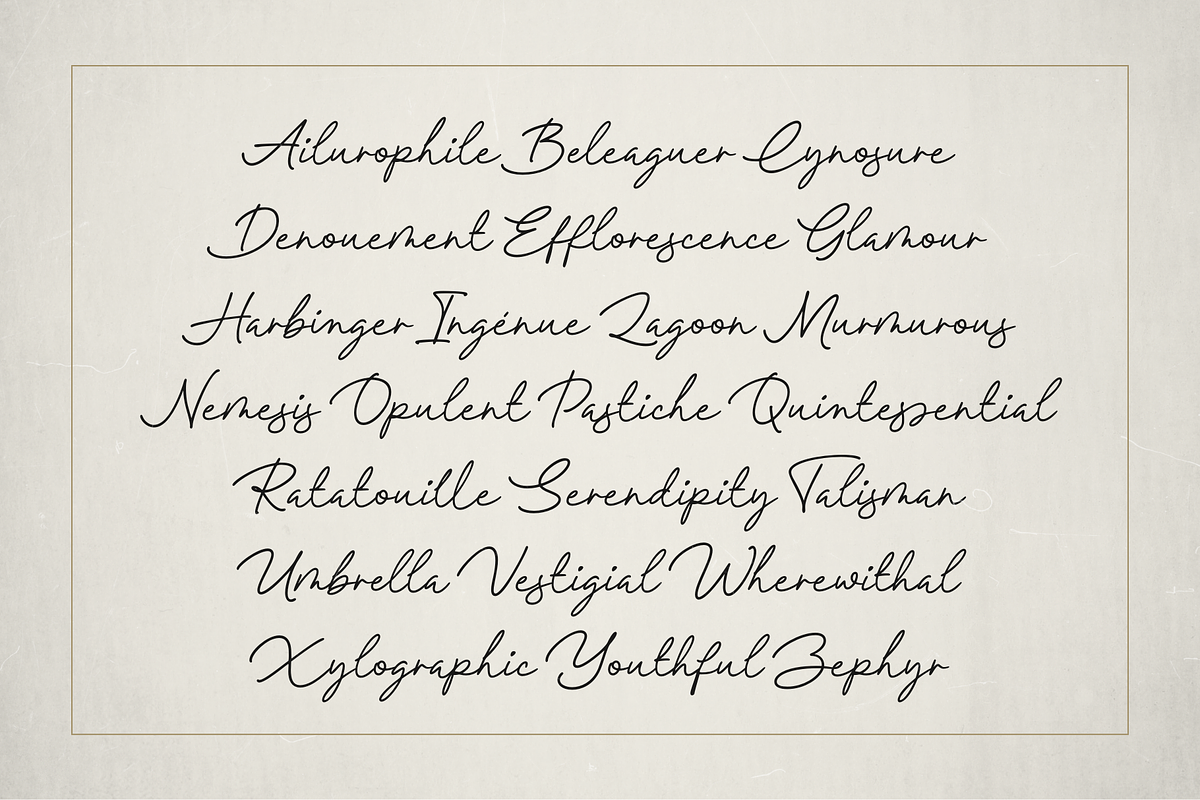 Ailurophile Beleaguer Cynosure
Denouement Efflorescence Glamour
Harbinger Ingénue Lagoon Murmurous
Nemesis Opulent Pastiche Quintessential
Ratatouille Serendipity Talisman
Umbrella Vestigial Wherewithal
Xylographic Youthful Zephyr